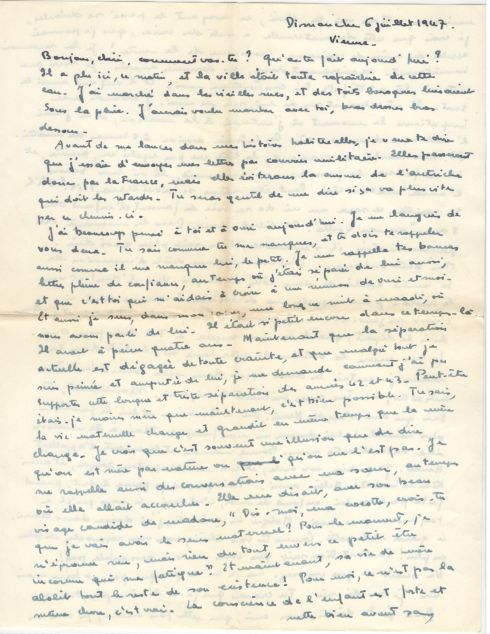 Dimanche 6 juillet 1947.
Vienne.
Bonjour, chéri, comment vas-tu? Qu'as-tu fait aujourd'hui?
Il a plu ici, ce matin, et la ville était toute rafraîchie de cette
eau. J'ai marché dans les vieilles rues, et des toits baroques luisaient
sous la pluie. J'aurais voulu marcher avec toi, bras dessus bras
dessous.
Avant de me lancer dans mes histoires habituelles, je veux te dire
que j'essaie d'envoyer mes lettres par courrier militaire. Elles passeront
donc par la France, mais elles éviteront la censure de l'Autriche
qui doit les retarder. Tu seras gentil de me dire si ça va plus vite
par ce chemin-ci.
J'ai beaucoup pensé à toi et à aujourd'hui. Je me languis de
vous deux. Tu sais comme tu me manques, et tu dois te rappeler
aussi comme il me manque lui, le petit. Je me rappelle tes bonnes
lettres pleines de confiance, au temps où j'étais séparée de lui aussi,
et que c'est toi qui m'aidais à croire à une réunion de et moi.
Et aussi je suis, dans mon une longue nuit à où
nous avons parlé de lui. Il était si petit encore dans ce temps-là
Il avait à peine quatre ans. Maintenant que la séparation
actuelle est dégagée de toute crainte, et que malgré tout je
suis peinée et amputée de lui, je me demande comment j'ai pu
supporter cette longue et triste séparation des années 42 et 43. Peut-être
étais-je moins mère que maintenant, c'est bien possible. Tu sais,
la vie maternelle change et grandit en même temps que la mère
change. Je crois que c'est souvent une illusion que de dire
qu'on est mère par nature ou qu'on ne l'est pas. Je
me rappelle aussi des conversations avec ma sœur, au temps
où elle allait accoucher. Elle me disait, avec son beau
visage candide de madone, "Dis-moi, ma cocotte, crois-tu
que je vais avoir le sens maternel? Pour le moment, je
n'éprouve rien, mais rien du tout, envers ce petit être
inconnu qui me fatigue". Et maintenant, sa vie de mère
abolit tout le reste de son existence! Pour moi, ce n'est pas la
même chose, c'est vrai. La conscience de l'enfant est forte et
nette bien avant sa